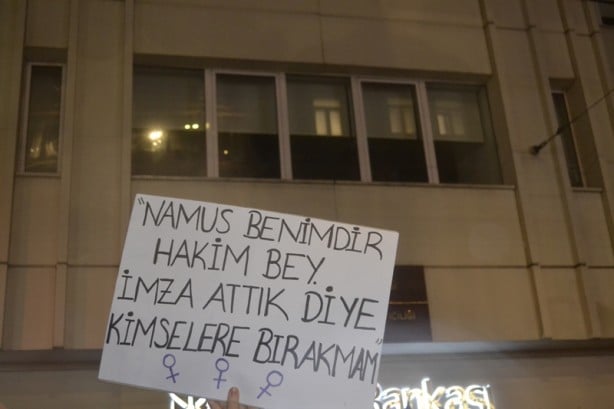 "NAMUS BENİMDİR
HAKİM BEY.
İMZA ATTIK DİYE
KİMSELERE BIRAKMAM"
Bankası